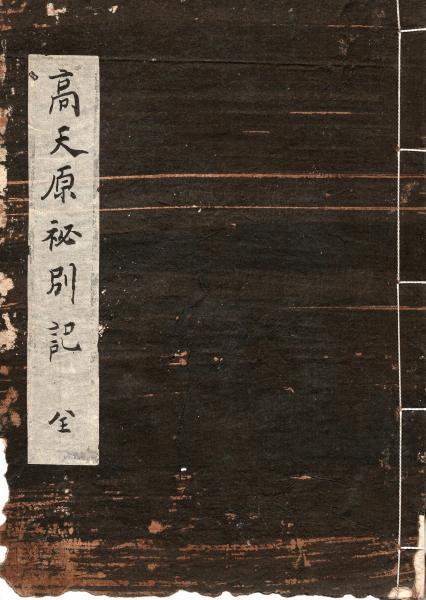 高天原祕別記 全